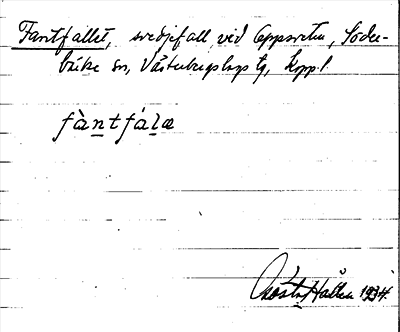 Fantfallet, svedjefall vid Uppsveten, Söder-
bärke sn, Västerbergslags tg, Kopp. l
fàntfálæ
Gösta Hallén 1934.